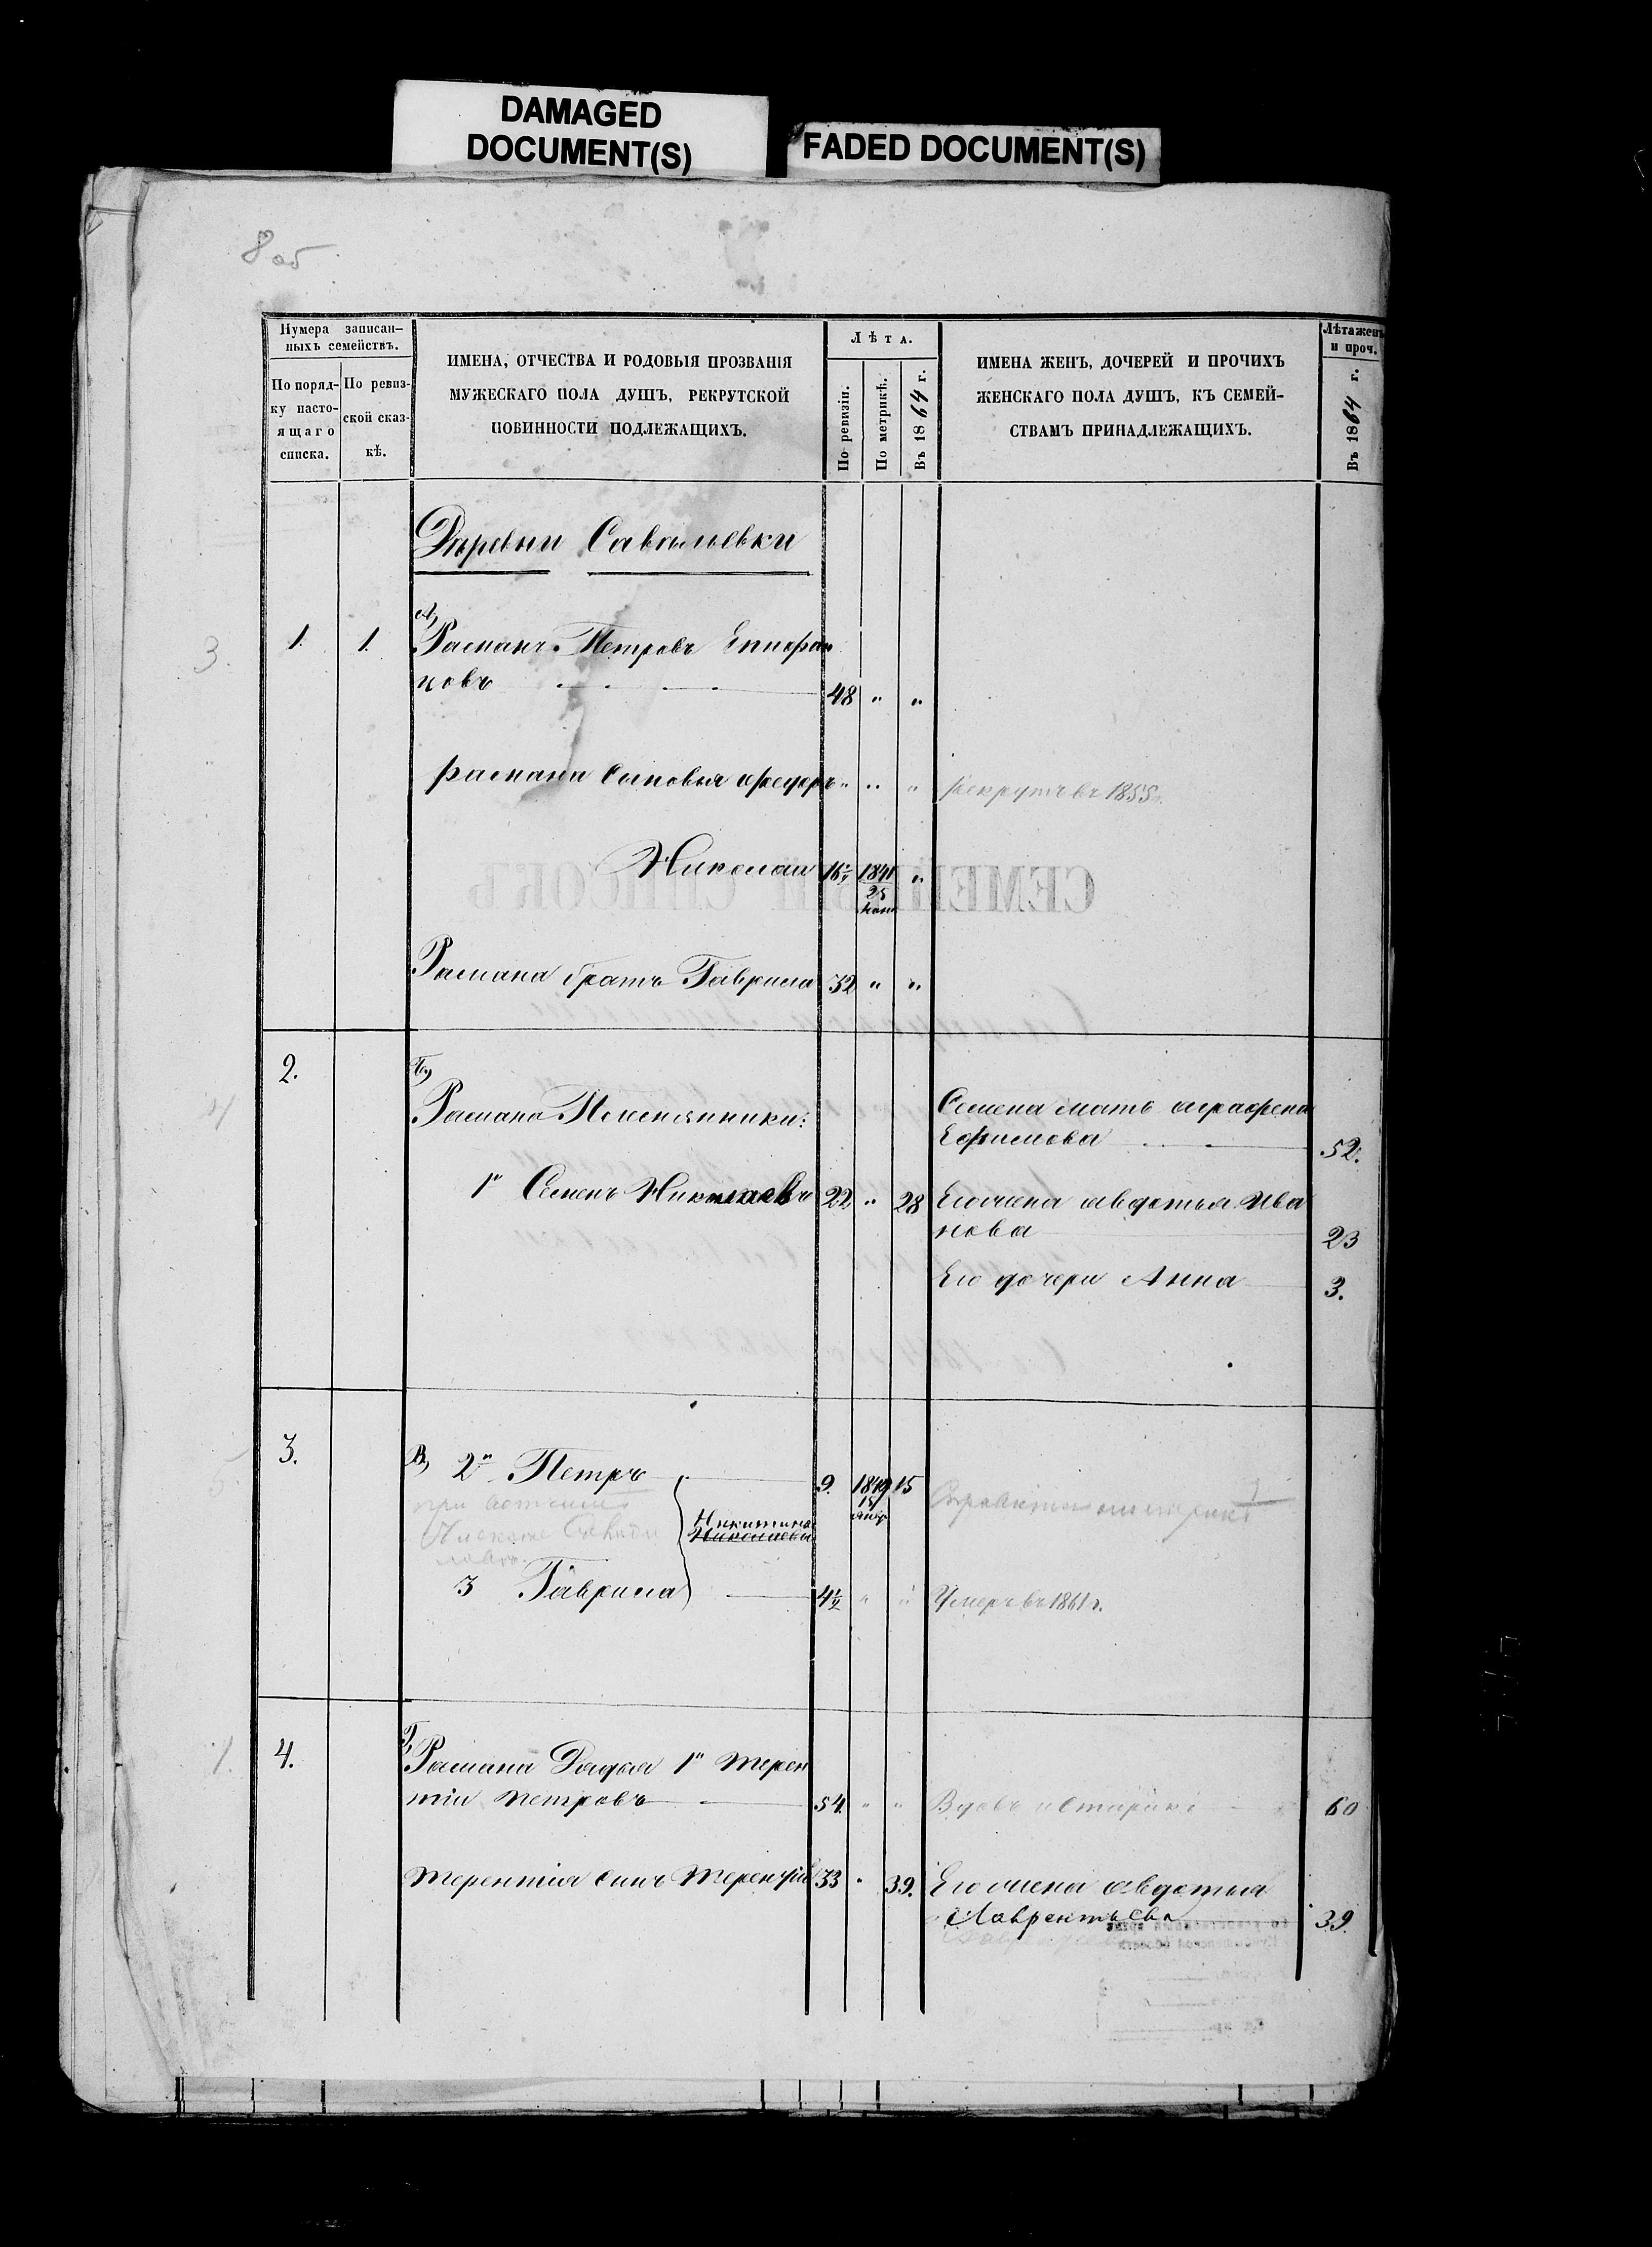 DAMAGED
DOCUMENT(S)
FADED DOCUMENT(S)
8 об
Нумера записан-
ныхъ семействъ.
По поряд-
ку насто-
ящаго
списка.
По ревиз-
ской сказ-
кѣ.
ИМЕНА, ОТЧЕСТВА И РОДОВЫЯ ПРОЗВАНІЯ
МУЖЕСКАГО ПОЛА ДУШЪ, РЕКРУТСКОЙ
ПОВИННОСТИ ПОДЛЕЖАЩИХЪ.
Лѣта.
По ревизіи.
По метрикѣ.
Въ 1864 г.
ИМЕНА ЖЕНЪ, ДОЧЕРЕЙ И ПРОЧИХЪ
ЖЕНСКАГО ПОЛА ДУШЪ, КЪ СЕМЕЙ-
СТВАМЪ ПРИНАДЛЕЖАЩИХЪ.
Лѣта женъ
и проч.
Въ 1864 г.
Деревни Савальевки
3. 1. 1. А, Раманъ Петровъ Епифан
новъ 48 " "
Рамана сыновья Федоръ " " " рекрутъ въ 1855 г.
Николай 16½ 1841 "
25
Рамана братъ Гаврила 32 " "
2. Б,
4 Рамана Племянники: Семена мать аграфена
Ефимова 52.
1й Семенъ Николаевъ 22 " 28 Его жена авдотья Ива
нова 23
Его дочери Анна 3.
5. 3. В, 2й Петръ 9. 1849 15
15
при вотчиме
Никитины
Николаевы
3 Гаврила 4½ " " Умеръ въ 1861 г.
1. 4. Г, Рамана Дядья 1й терен
тіи петровъ 54. " " Вдовъ и старикъ 60
терентія сынъ терентій 33 " 39. Его жена авдотья
Лаврентьева 39.